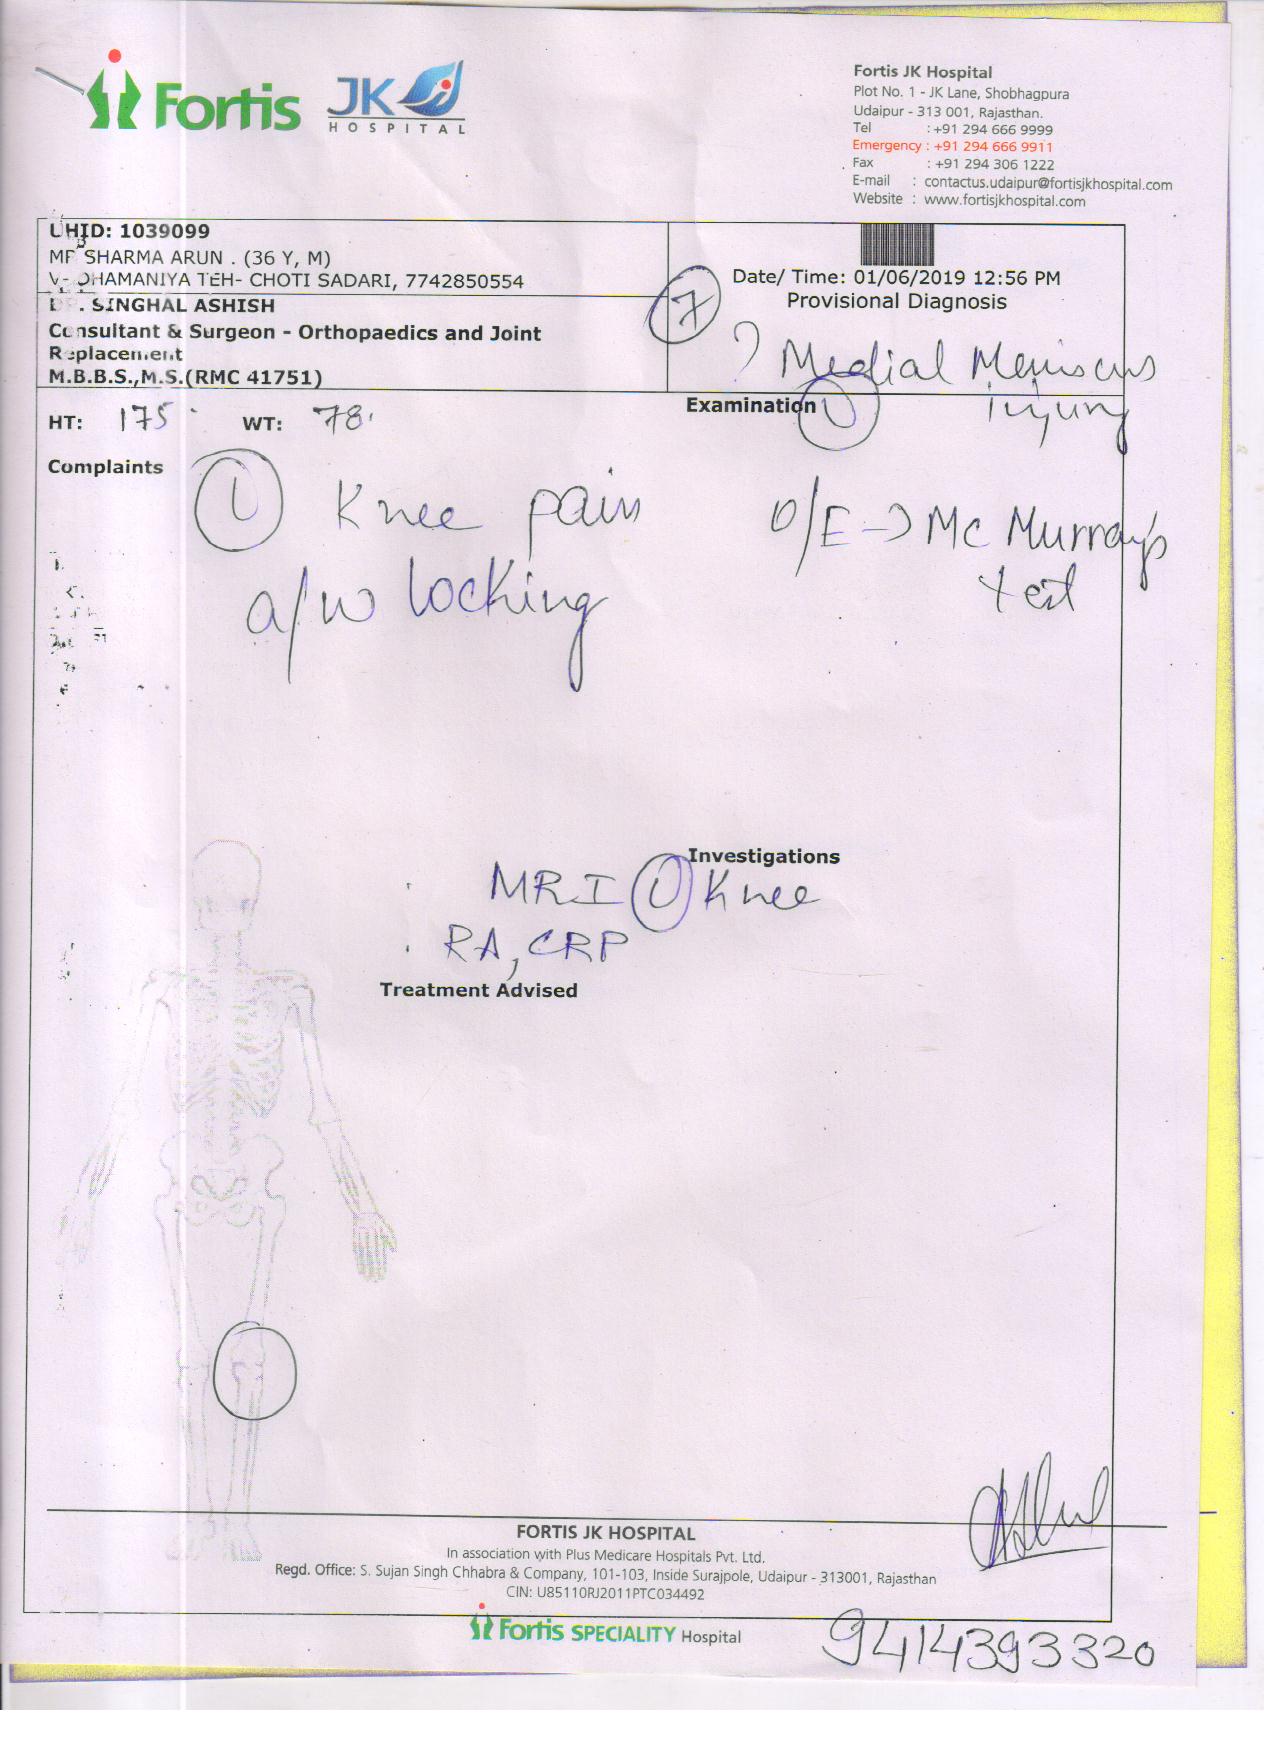 Fortis JK HOSPITAL
Fortis JK Hospital
Plot No. 1 - JK Lane, Shobhagpura
Udaipur - 313 001, Rajasthan.
Tel : +91 294 666 9999
Emergency : +91 294 666 9911
Fax : +91 294 306 1222
E-mail : contactus.udaipur@fortisjkhospital.com
Website : www.fortisjkhospital.com
UHID: 1039099
SHARMA ARUN . (36 Y, M)
DHAMANIYA TEH- CHOTI SADARI, 7742850554
SINGHAL ASHISH
Consultant & Surgeon - Orthopaedics and Joint
Replacement
M.B.B.S.,M.S.(RMC 41751)
7
Date/ Time: 01/06/2019 12:56 PM
Provisional Diagnosis
? Medial Meniscus
L injury
HT: 175 WT: 78
Examination
Complaints
L Knee pain
a/w locking
O/E → Mc Murray's
test
Investigations
MRI L Knee
RA, CRP
Treatment Advised
FORTIS JK HOSPITAL
In association with Plus Medicare Hospitals Pvt. Ltd.
Regd. Office: S. Sujan Singh Chhabra & Company, 101-103, Inside Surajpole, Udaipur - 313001, Rajasthan
CIN: U85110RJ2011PTC034492
Fortis SPECIALITY Hospital
9414393320